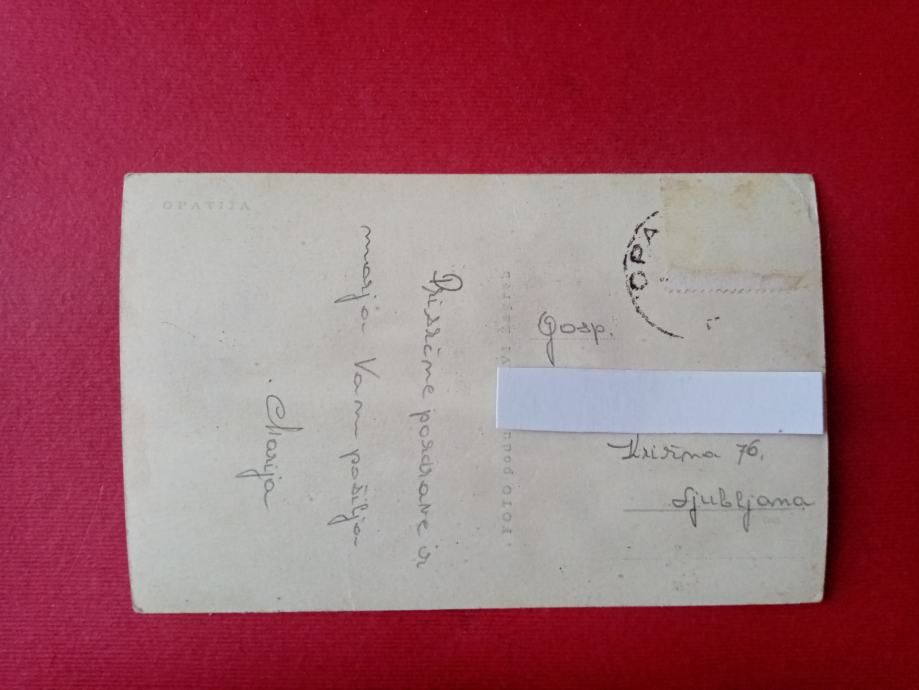 OPATIJA
Prisrčne pozdrave iz
morja Vam pošilja
Marija
OPA
Gosp.
Križna 76,
Ljubljana